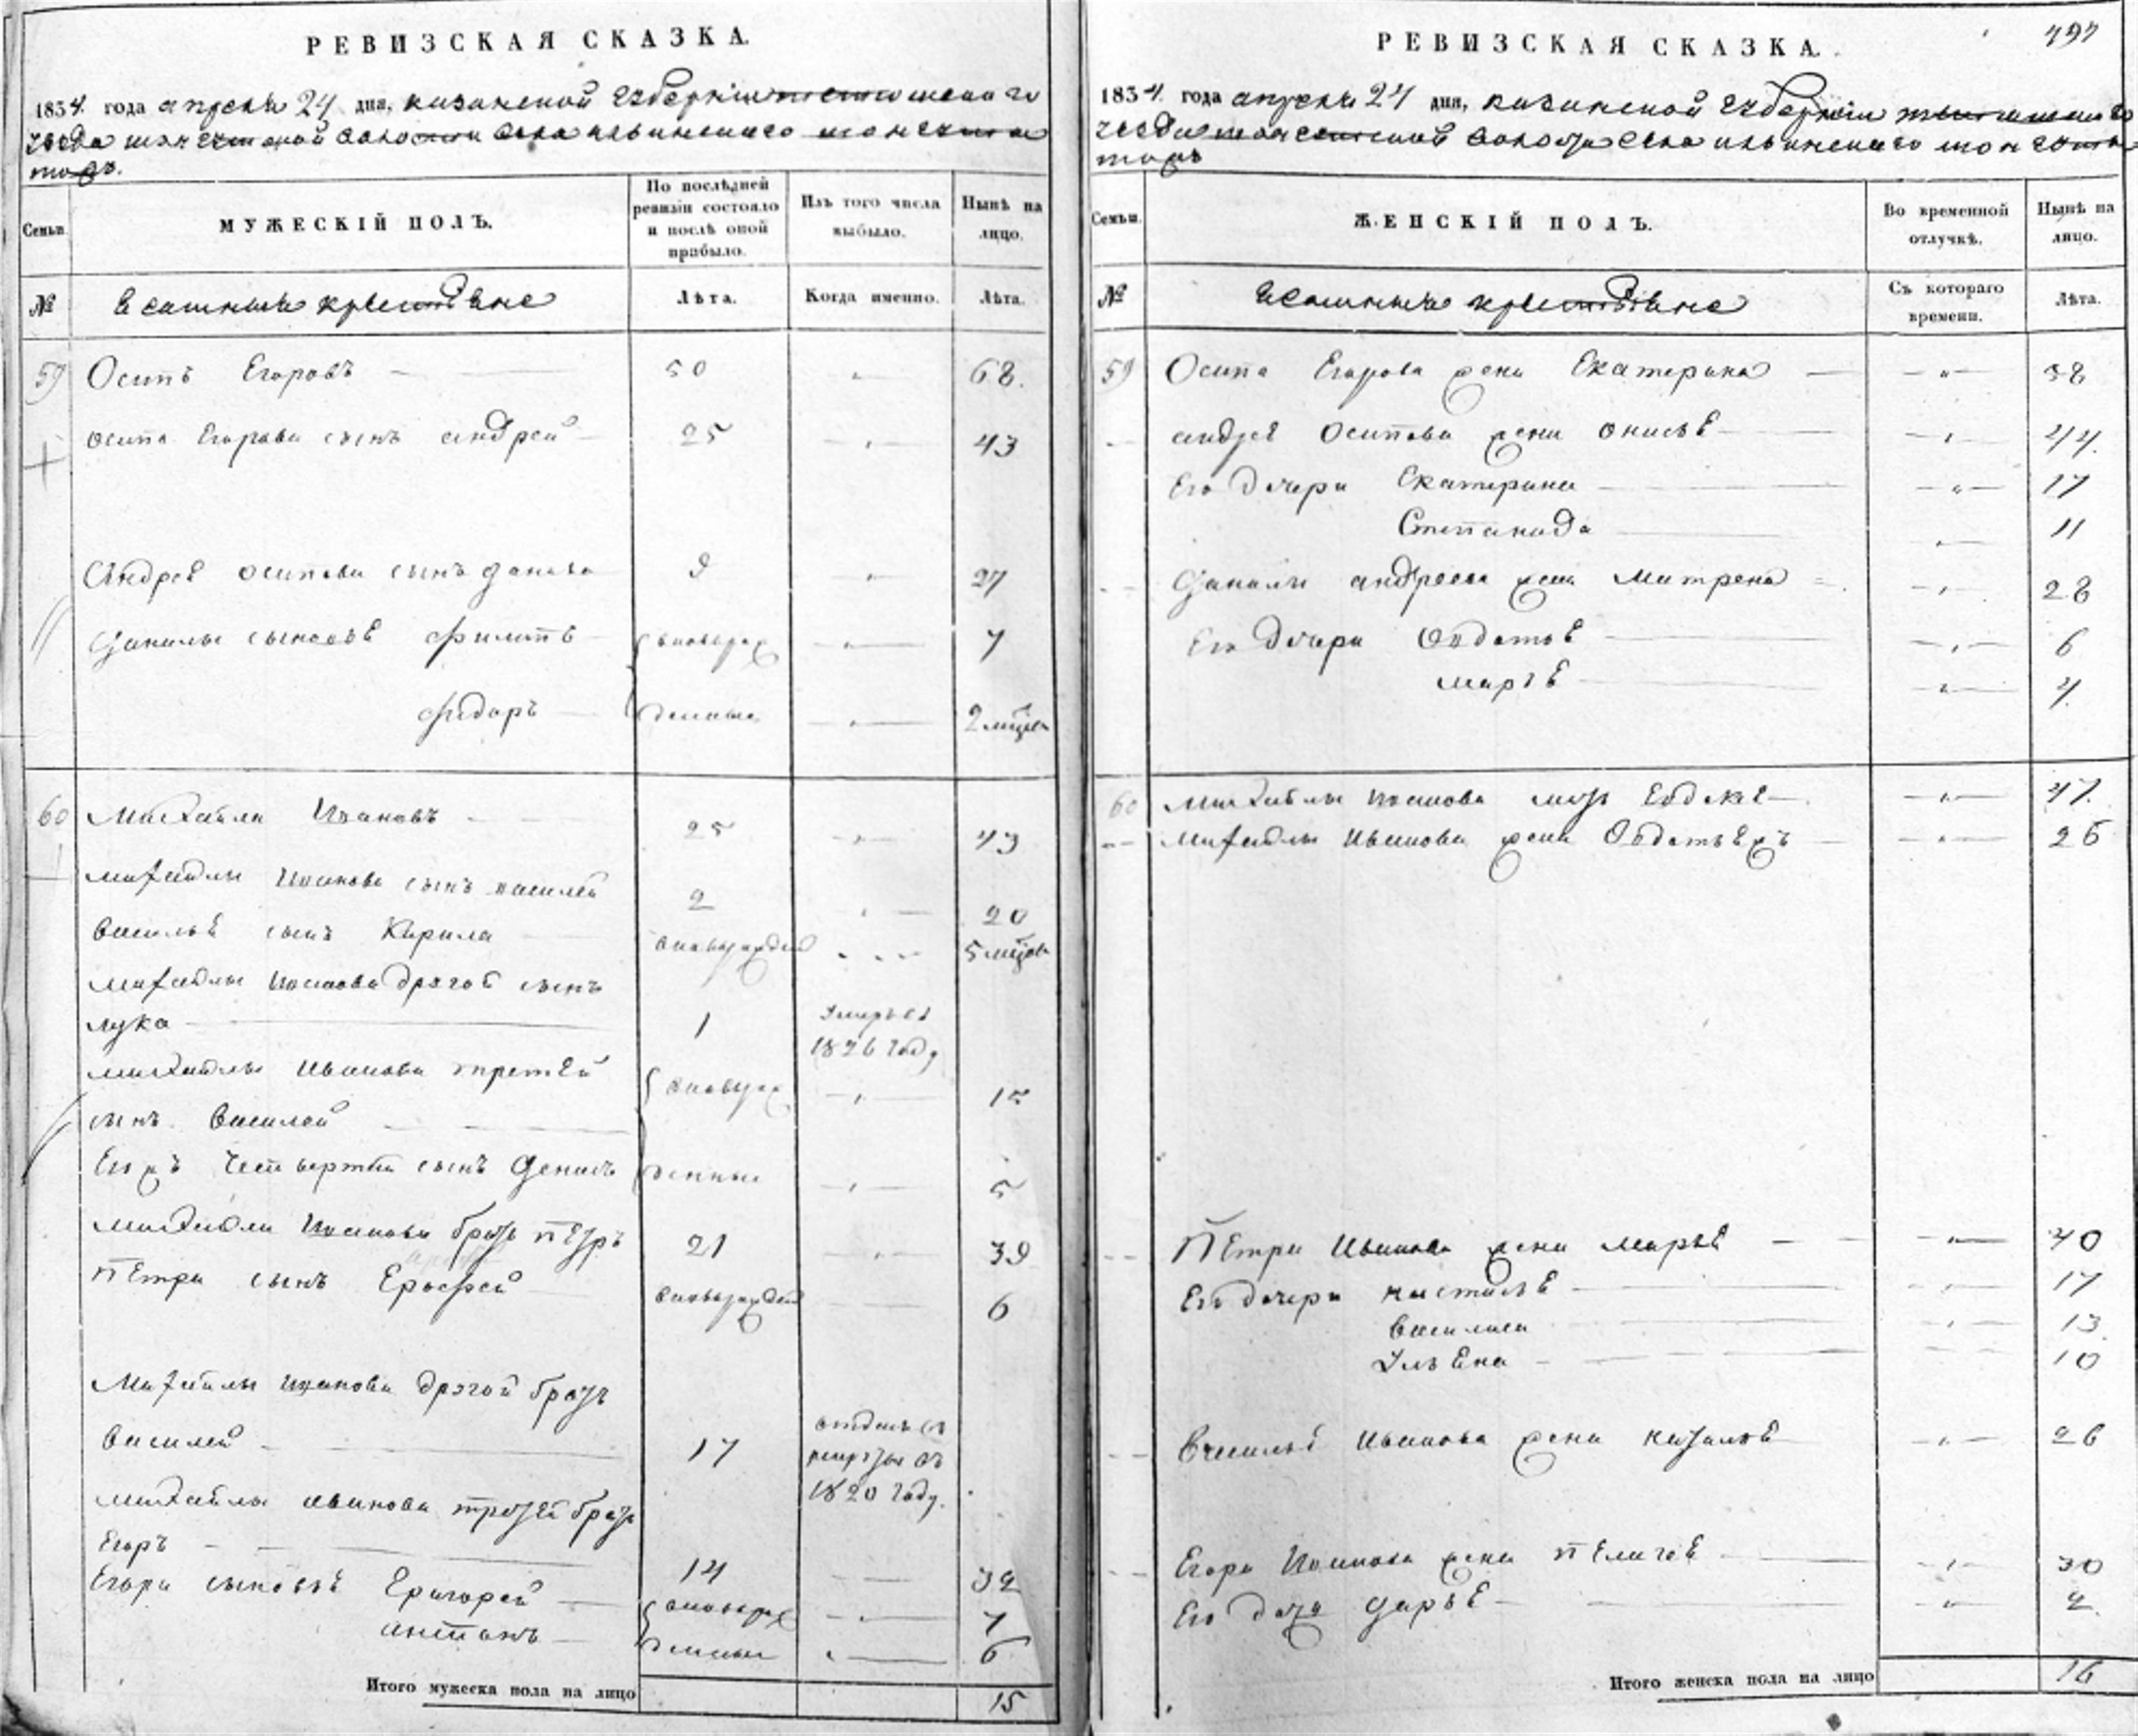 РЕВИЗСКАЯ СКАЗКА.
1834 года апреля 24 дня, казанской губернии
уезда волости села ильинского
МУЖЕСКІЙ ПОЛЪ.
Семьи.
По послѣдней ревизіи состояло и послѣ оной прибыло.
Изъ того числа выбыло.
Нынѣ на лицо.
№
ясашныя крестьяне
Лѣта.
Когда именно.
Лѣта.
59 Осипъ Егоровъ 50 68.
осипа Егорова сынъ андрей 25 43
Андрея осипова сынъ данила 9 27
Данилы сыновья филипъ вновьрож 7
федоръ денные 2
60 Михаила Ивановъ 25 43
михайлы Иванова сынъ василей 2 20
василья сынъ Кирила вновьрожден 5
михайлы Иванова другой сынъ
лука 1 умръ въ 1826 году
михайлы иванова третей вновьрож 15
сынъ василей
Егожъ четвертой сынъ Денисъ денные 5
михайлы Иванова братъ петръ 21 39
петра сынъ Ерофей вновьрожден 6
Михайлы иванова другой братъ
василей 17 отданъ въ рекруты въ 1820 году.
михайлы иванова третей братъ
Егоръ 14 32
Егора сыновья Григорей вновьрож 7
антонъ денные 6
Итого мужеска пола на лицо 15
РЕВИЗСКАЯ СКАЗКА.
1834 года апреля 24 дня, казанской губернии
уезда волости села ильинского
ЖЕНСКІЙ ПОЛЪ.
Семьи.
Во временной отлучкѣ.
Нынѣ на лицо.
№
ясашныя крестьяне
Съ котораго времени.
Лѣта.
59 Осипа Егорова жена Екатерина 38
андрея осипова жена онисья 44.
Его дочери Екатерина 17
Степанида 11
Данилы андреева жена Матрена 28
Его дочери Овдотья 6
марья 4.
60 Михайлы Иванова мать 47.
михайлы Иванова жена 26
Петра Иванова жена марья 40
Его дочери настасья 17
василиса 13
Ульена 10
василья Иванова жена наталья 26
Егора Иванова жена пелагея 30
Его дочь дарья 2.
Итого женска пола на лицо 16